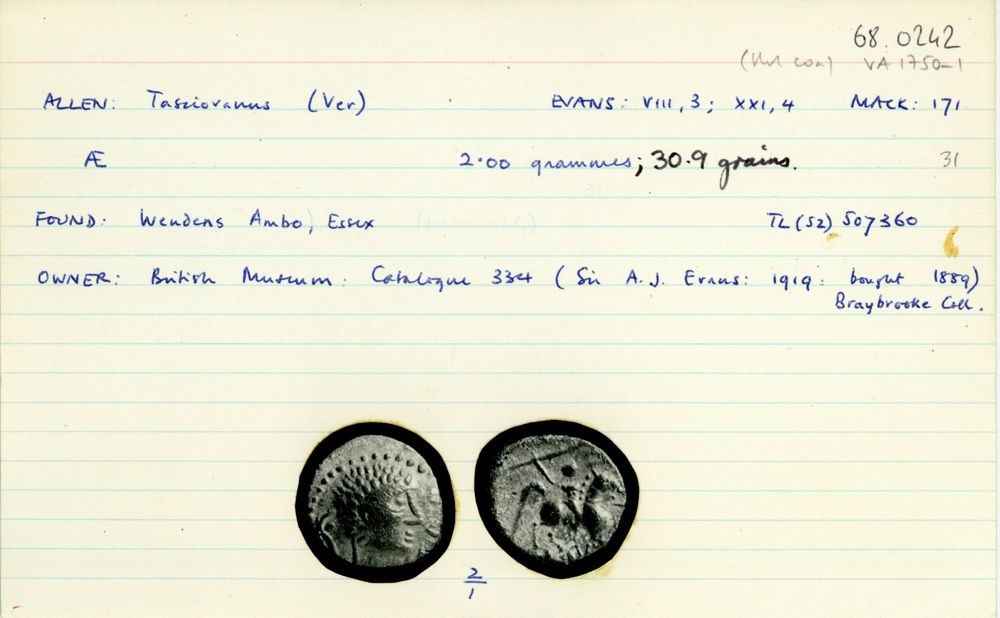 68.0242
VA 1750-1
ALLEN: Tasciovanus (Ver) EVANS: VIII, 3; XXI, 4 MACK: 171
Æ 2.00 grammes; 30.9 grains. 31
FOUND: Wendens Ambo, Essex TL (52) 507360
OWNER: British Museum: Catalogue 334 (Sir A.J. Evans: 1919: bought 1889)
Braybrooke Coll.
2
1